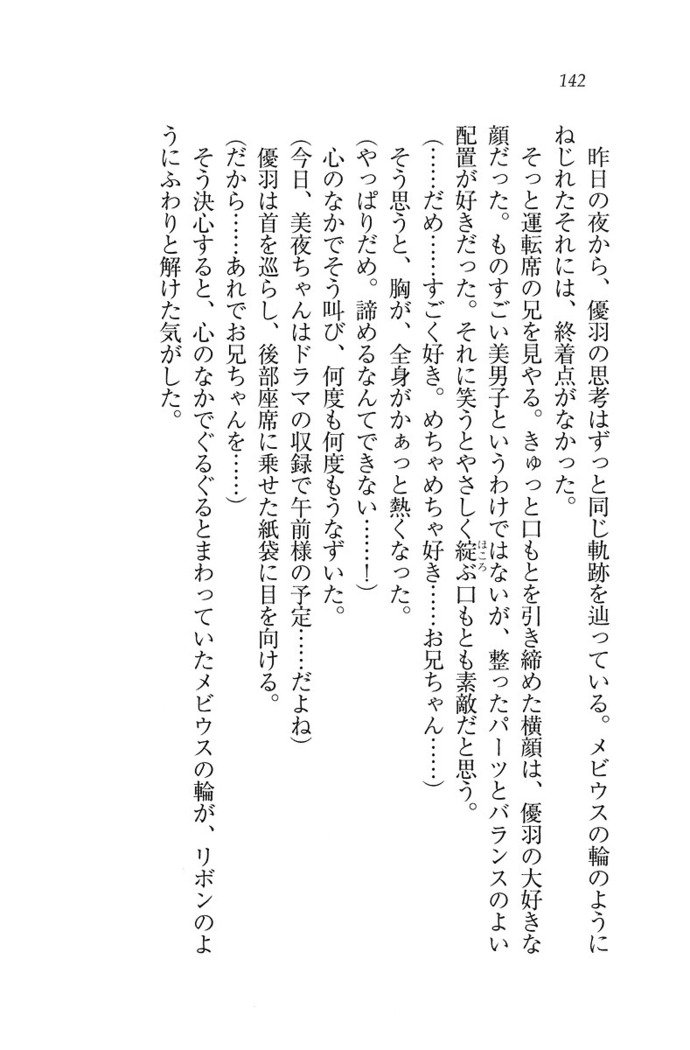 142
昨日の夜から、優羽の思考はずっと同じ軌跡を辿っている。メビウスの輪のように
ねじれたそれには、終着点がなかった。
そっと運転席の兄を見やる。きゅっと口もとを引き締めた横顔は、優羽の大好きな
顔だった。ものすごい美男子というわけではないが、整ったパーツとバランスのよい
配置が好きだった。それに笑うとやさしく綻ぶ口もとも素敵だと思う。
ほころ
(……だめ……すごく好き。めちゃめちゃ好き……お兄ちゃん……)
そう思うと、胸が、全身がかぁっと熱くなった。
(やっぱりだめ。諦めるなんてできない……!)
心のなかでそう叫び、何度も何度もうなずいた。
(今日、美夜ちゃんはドラマの収録で午前様の予定……だよね)
優羽は首を巡らし、後部座席に乗せた紙袋に目を向ける。
(だから……あれでお兄ちゃんを……)
そう決心すると、心のなかでぐるぐるとまわっていたメビウスの輪が、リボンのよ
うにふわりと解けた気がした。